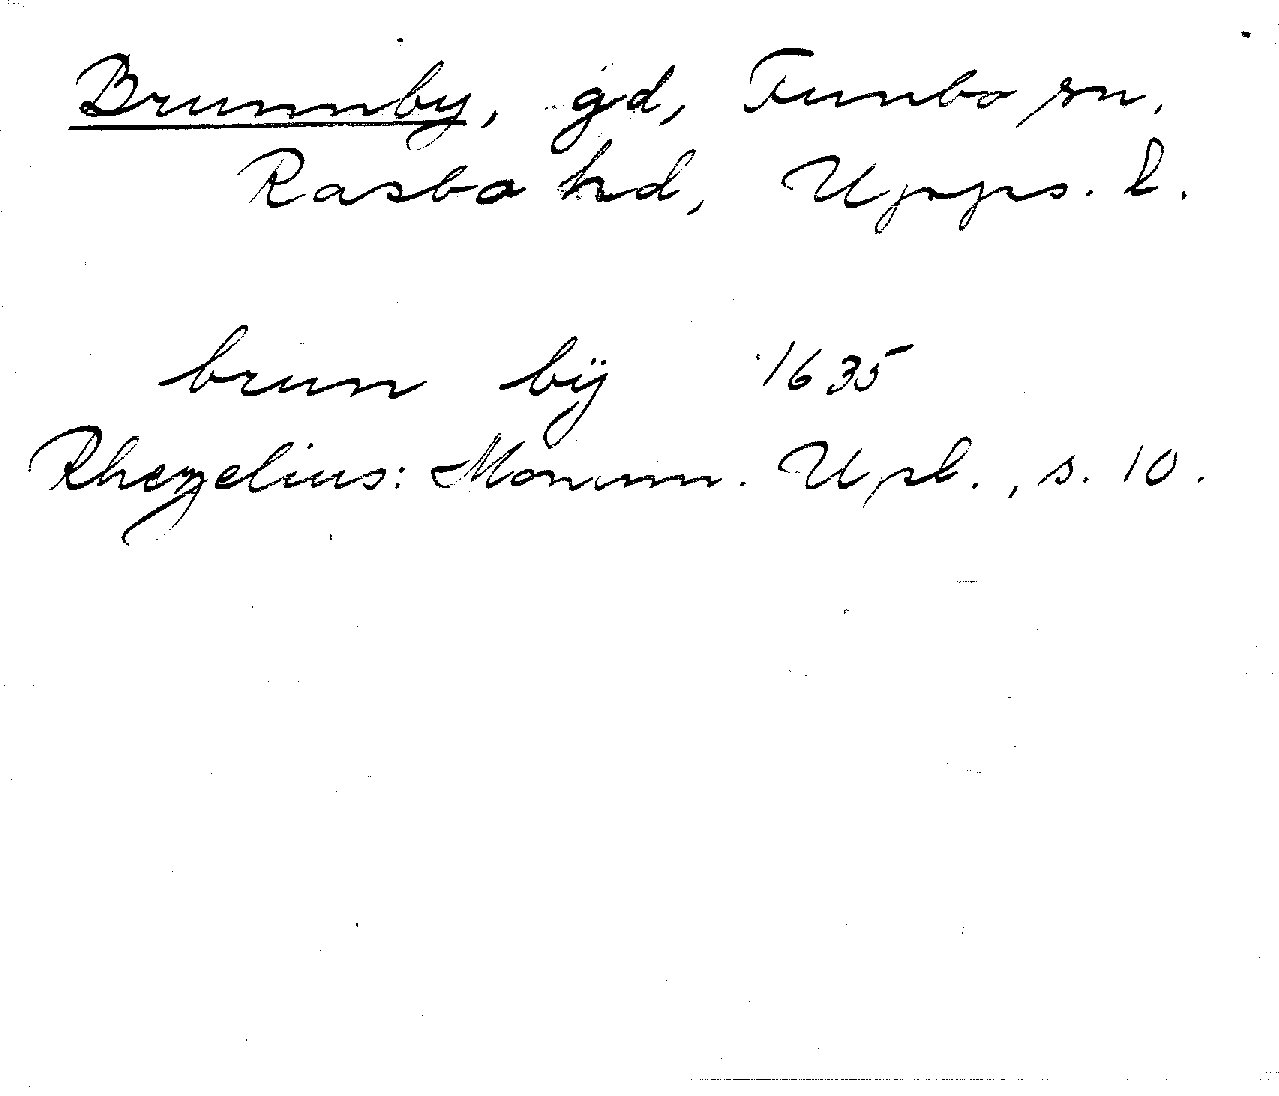 Brunnby, gd, Funbo sn,
Rasbo hd, Upps. l.
brun bÿ 1635
Rhezelius: Monum. Upl., s. 10.